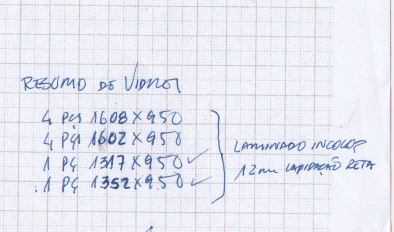 RESUMO DE VIDROS
4 PÇS 1608 X 950
4 PÇS 1602 X 950
1 PÇ 1317 X 950 ✓
1 PÇ 1352 X 950 ✓
LAMINADO INCOLOR
12mm LAPIDAÇÃO RETA